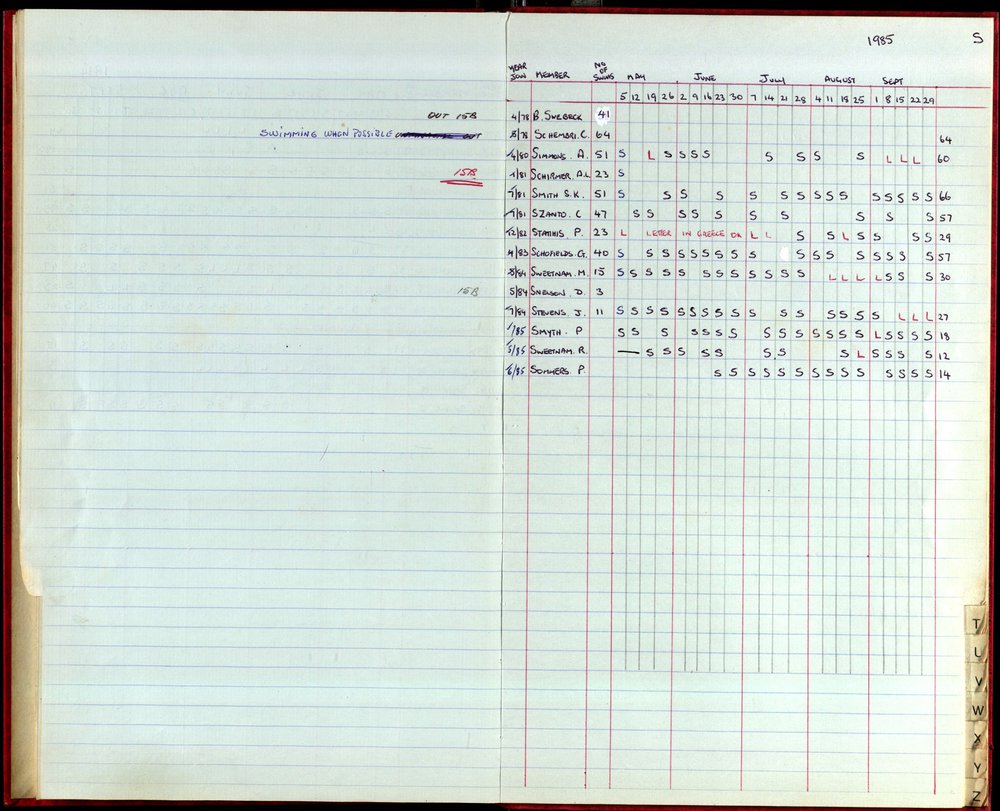 1985 S
YEAR JOIN MEMBER NO OF SWIMS MAY JUNE JULY AUGUST SEPT
5 12 19 26 2 9 16 23 30 7 14 21 28 4 11 18 25 1 8 15 22 29
OUT 15B 4/78 B. SUEBECK 41
SWIMMING WHEN POSSIBLE OUT 8/78 SCHEMBRI. C. 64 64
4/80 SIMMONS. A. 51 S L S S S S S S S S L L L 60
15B 1/81 SCHIRMER. A.L 23 S
1/81 SMITH S.K. 51 S S S S S S S S S S S S S S S 66
1/81 SZANTO. C 47 S S S S S S S S S S 57
12/82 STATHIS. P. 23 L LETER IN GREECE OK L L S S L S S S S 29
4/83 SCHOFIELDS. G. 40 S S S S S S S S S S S S S S S S S 57
8/84 SWEETNAM. M. 15 S S S S S S S S S S S S S L L L L S S S 30
15B 5/84 SNELSON. D. 3
7/84 STEVENS. J. 11 S S S S S S S S S S S S S S S S S L L L 27
1/85 SMYTH. P S S S S S S S S S S S S S S S L S S S S 18
5/85 SWEETNAM. R. — S S S S S S S S L S S S S 12
6/85 SOMMERS. P. S S S S S S S S S S S S S S S 14
T
U
V
W
X
Y
Z